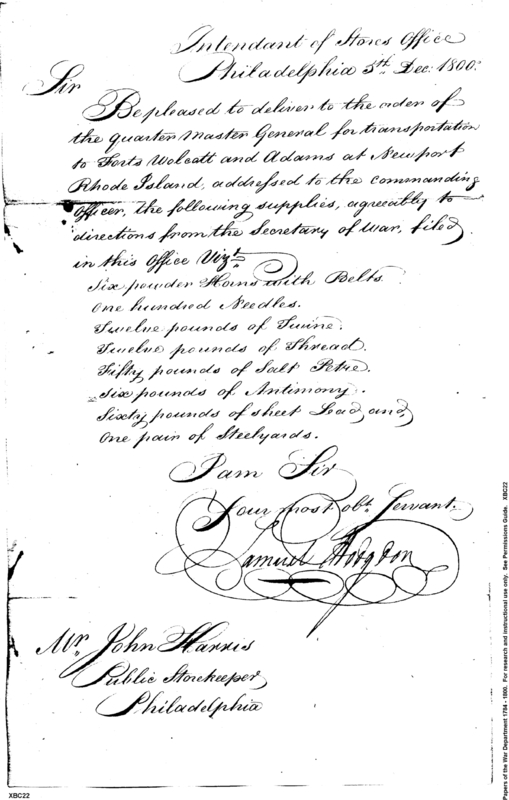 Intendant of Stores Office
Philadelphia 5th. Dec: 1800.
Sir
Be pleased to deliver to the order of
the Quarter Master General for transportation
to Forts Wolcott and Adams at Newport
Rhode Island, addressed to the commanding
Officer, the following supplies, agreeably to
directions from the Secretary of War, filed
in this Office Vizt.
Six powder Horns with Belts.
One hundred Needles.
Twelve pounds of Twine.
Twelve pounds of Thread.
Fifty pounds of Salt Petre.
Six pounds of Antimony.
Sixty pounds of sheet Lead, and
One pair of Steelyards.
I am Sir
Your most obt. Servant.
Samuel Hodgdon
Mr. John Harris
Public Storekeeper
Philadelphia
XBC22
Papers of the War Department 1784 - 1800. For research and instructional use only. See Permissions Guide. XBC22